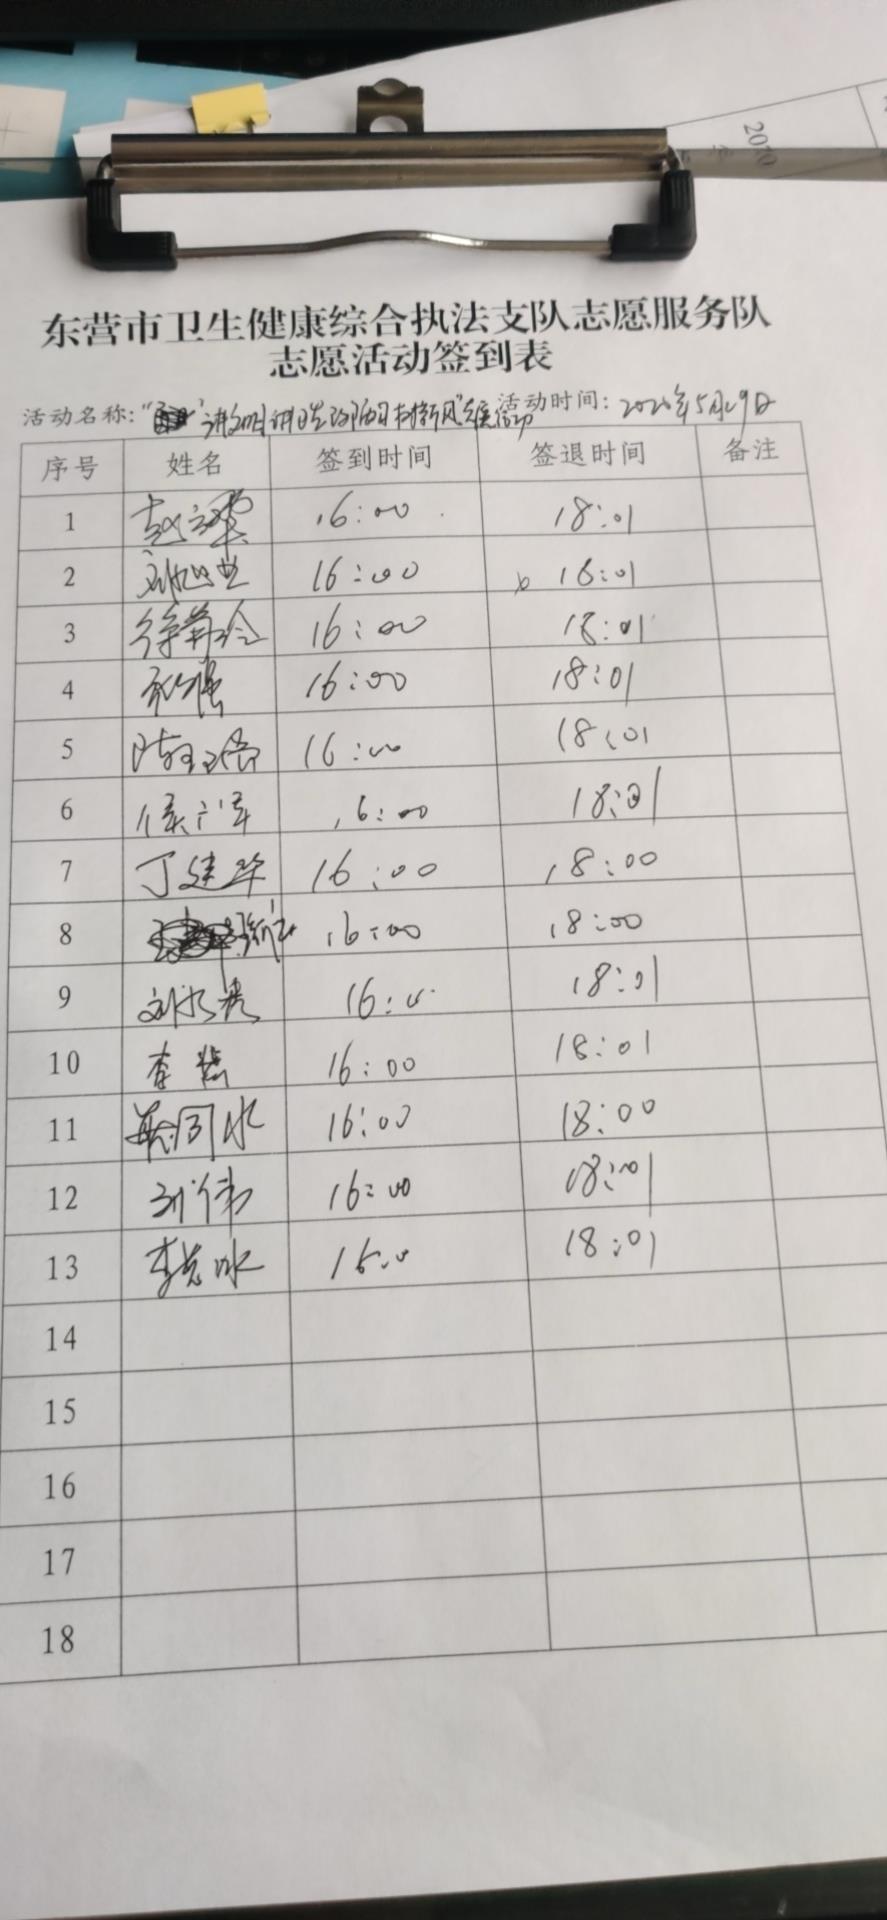 2020
东营市卫生健康综合执法支队志愿服务队
志愿活动签到表
活动名称：“讲文明讲卫生改陋习树新风”志愿活动 活动时间：2020年5月29日
序号 姓名 签到时间 签退时间 备注
1 16:00 18:01
2 16:00 18:01
3 16:00 18:01
4 16:00 18:01
5 陈玉 16:00 18:01
6 侯广军 16:00 18:01
7 丁建华 16:00 18:00
8 16:00 18:00
9 刘 16:0 18:01
10 李 16:00 18:01
11 16:00 18:00
12 刘伟 16:00 18:01
13 李 16:0 18:01
14
15
16
17
18